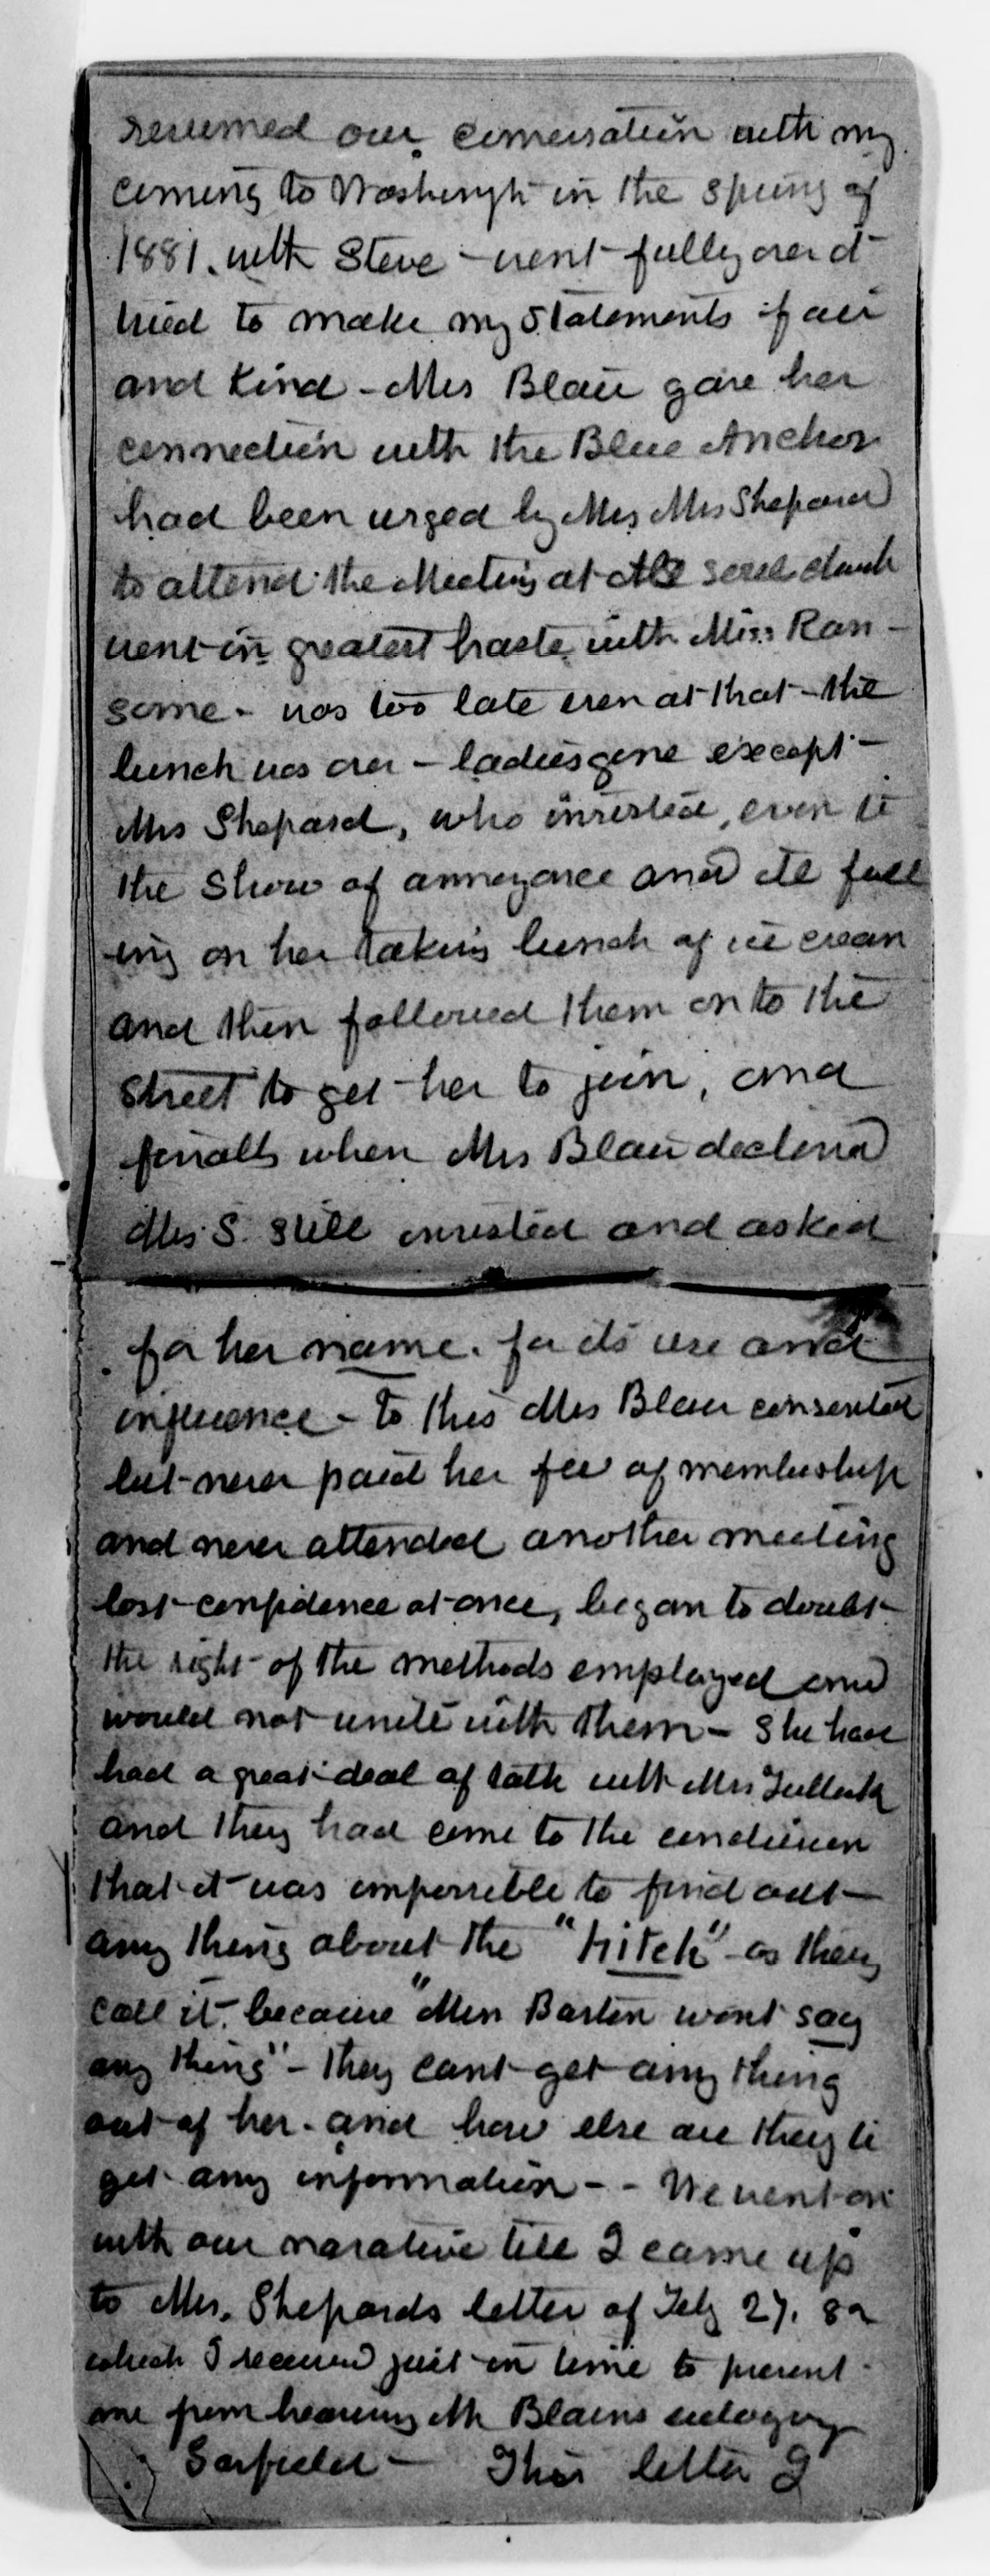 resumed our conversation with my
coming to Washingt in the spring of
1881. with Steve - went fully over it
tried to make my statements fair
and kind - Mrs Blair gave her
connection with the Blue Anchor
had been urged by Mrs Mrs Shepard
to attend the Meeting at the
went in greatest haste with Miss Ran -
some - was too late even at that - the
lunch was over - ladies gone except -
Mrs Shepard, who insisted, even to
the show of annoyance and ill feel
ing on her taking lunch of ice cream
and then followed them onto the
street to get her to join, and
finally when Mrs Blair declined
Mrs S. still insisted and asked
for her name. for its use and
influence - to this Mrs Blair consented
but never paid her fee of membership
and never attended another meeting
lost confidence at once, began to doubt
the right of the methods employed and
would not unite with them - She had
had a great deal of talk with Mrs
and they had come to the conclusion
that it was impossible to find out -
any thing about the "hitch" as they
call it. because "Miss Barton wont say
any thing" - they cant get any thing
out of her - and how else are they to
get any information - - We went on
with our narative till I came up
to Mrs. Shepards letter of Feby 27. 82
which I received just in time to prevent
me from hearing Mr Blains eulogy
Garfield - This letter I